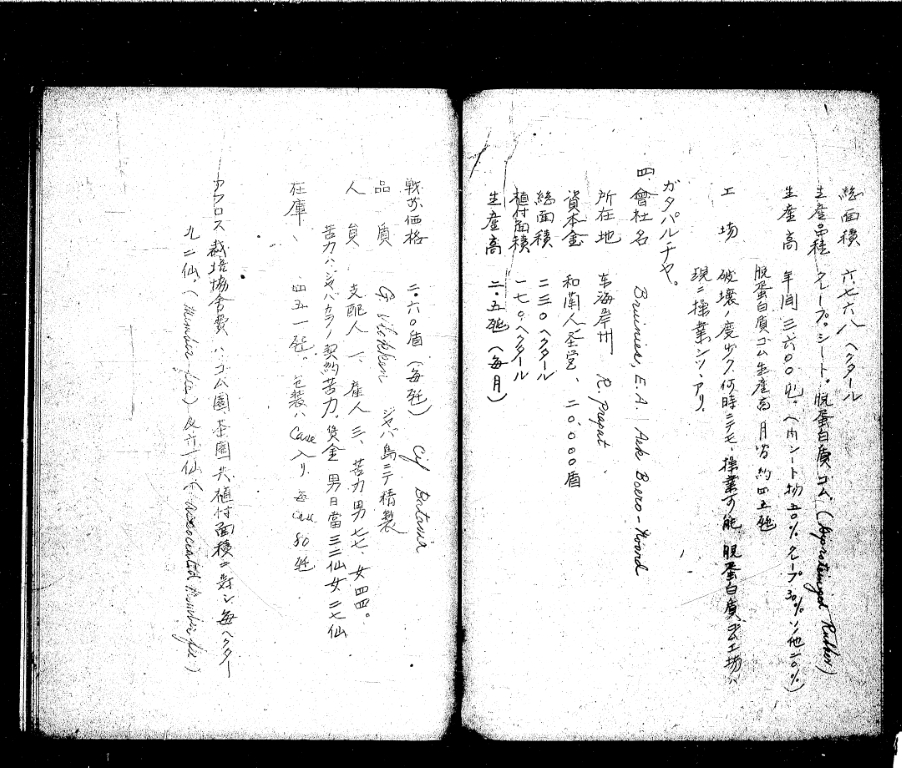 総面積 六、七六八 ヘクタール
生産品種 クレープ、シート、脱蛋白質ゴム、( Rubber)
生産高 年間三六〇〇屯。(内シート物五〇% クレープ 30% ソノ他二〇%)
脱蛋白質ゴム生産高 月 約四五屯
工場 破壊ノ度少ク何時ニテモ操業可能 脱蛋白質ゴム工場ハ
現ニ操業シツヽアリ。
ガタパルチヤ。
四 會社名 Bruinier, E.A. Aek Boero-Noord
所在地 东海岸州 R. Prapat.
資本金 和蘭人経営、二〇,〇〇〇盾
総面積 二三〇ヘクタール
植付面積 一七〇ヘクタール
生産高 二・五屯(毎月)
戦前価格 二・六〇盾(毎瓩) Cif Batavia
品質 G. ジャバ島ニテ精製
人員 支配人 一、産人 三、苦力男七七、女四四。
苦力ハジャバカラノ契約苦力、賃金 男日當三二仙 女二七仙
在庫、 四五一瓩、包装ハ Case 入リ 毎 Case 80 瓩
アブロス栽培協會費ハゴム園茶園共植付面積ニ対シ毎ヘクター
九二仙。(member fee) 及六一仙(associated member fee)